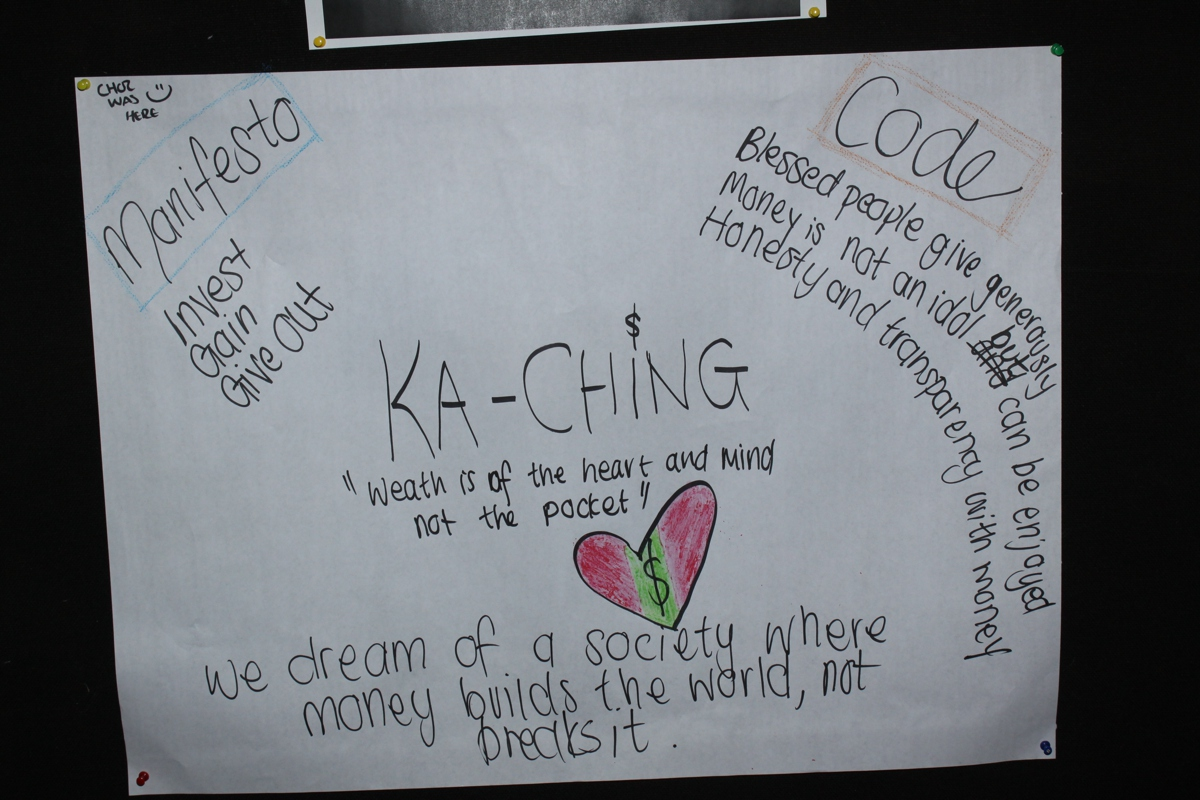 CHOZ
WAS
HERE
Manifesto
Invest
Gain
Give Out
Code
Blessed people give generously
Money is not an idol but can be enjoyed
Honesty and transparency with money
$
KA-CHiNG
"Weath is of the heart and mind
not the pocket"
$
we dream of a society where
money builds the world, not
breaks it.